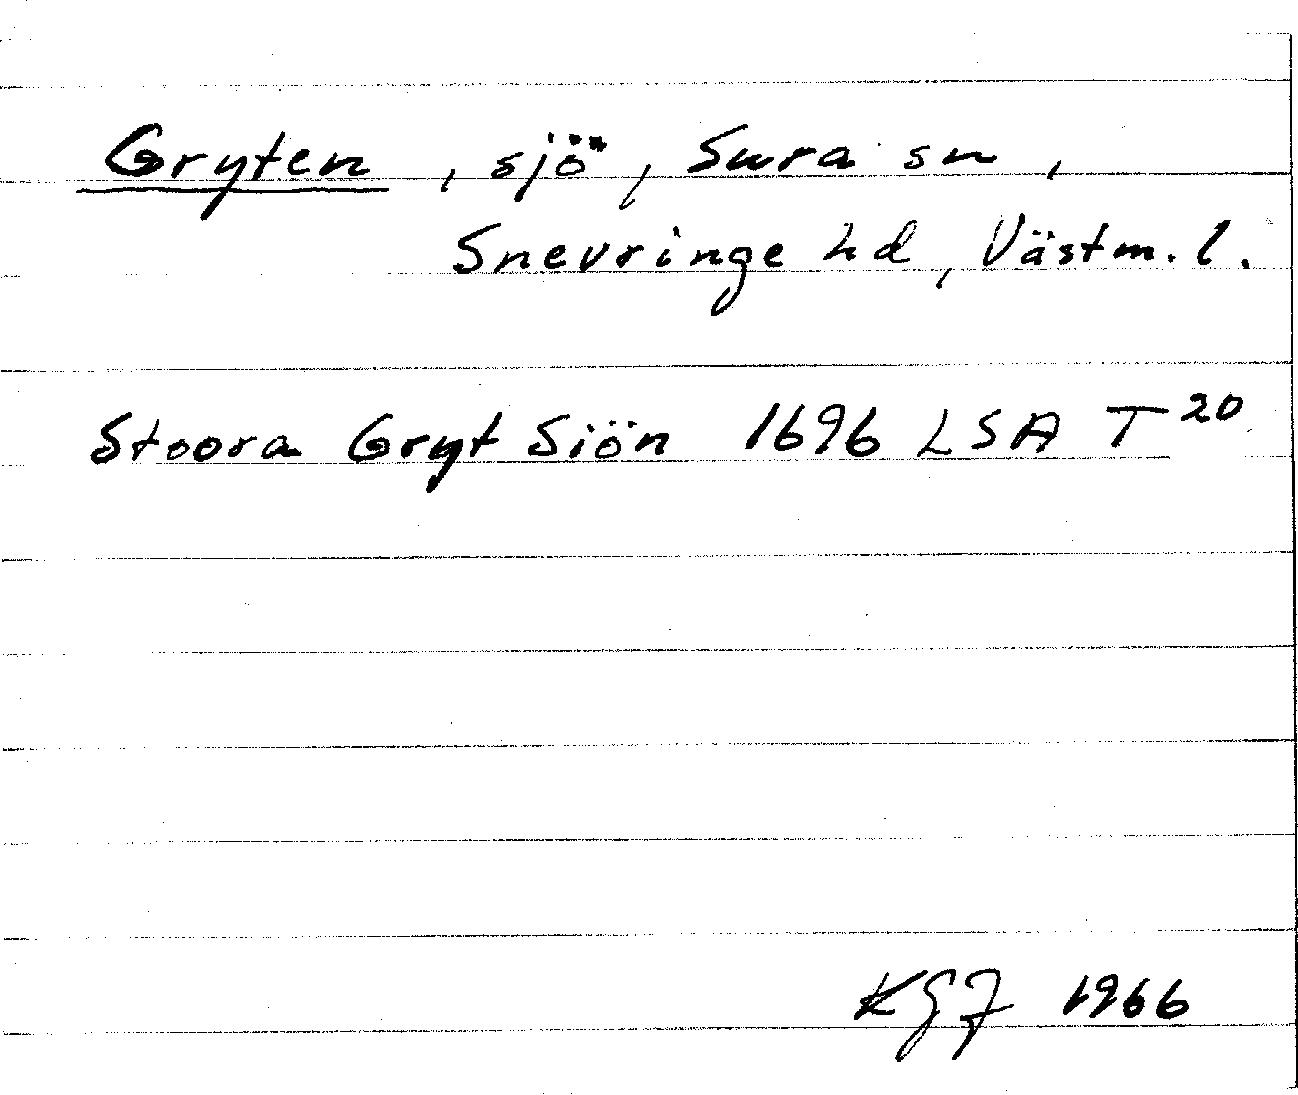 Gryten, sjö, Sura sn,
Snevringe hd, Västm. l.
Stoora Gryt Siön 1696 LSA T²⁰
KGJ 1966